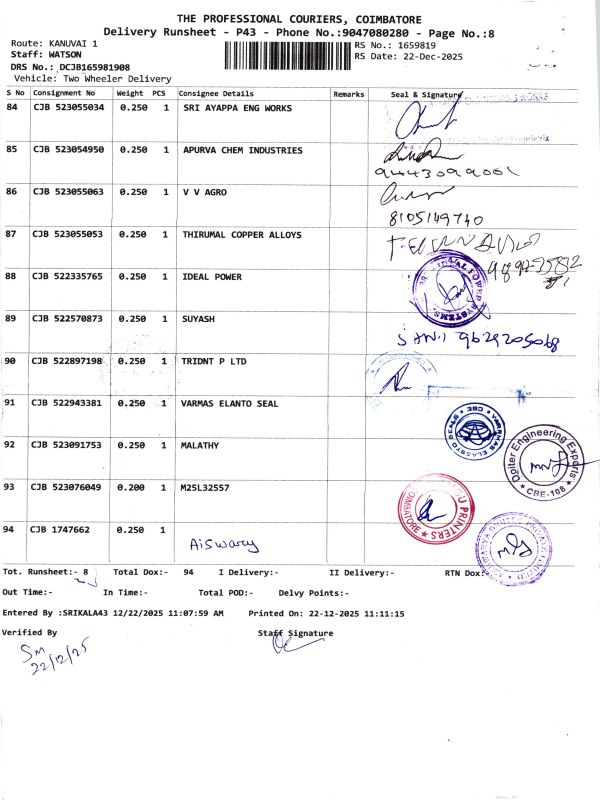 THE PROFESSIONAL COURIERS, COIMBATORE
Delivery Runsheet - P43 - Phone No.:9047080280 - Page No.:8
Route: KANUVAI 1
RS No.: 1659819
Staff: WATSON
RS Date: 22-Dec-2025
DRS No.: DCJB165981908
Vehicle: Two Wheeler Delivery
S No Consignment No Weight PCS Consignee Details Remarks Seal & Signature
84 CJB 523055034 0.250 1 SRI AYAPPA ENG WORKS
85 CJB 523054950 0.250 1 APURVA CHEM INDUSTRIES
9443099061
86 CJB 523055063 0.250 1 V V AGRO
8105149740
87 CJB 523055053 0.250 1 THIRUMAL COPPER ALLOYS
88 CJB 522335765 0.250 1 IDEAL POWER
IDEAL POWER SYSTEMS
89 CJB 522570873 0.250 1 SUYASH
9629205068
90 CJB 522897198 0.250 1 TRIDNT P LTD
91 CJB 522943381 0.250 1 VARMAS ELANTO SEAL
VARRMAS ELASTO SEALS CBE
92 CJB 523091753 0.250 1 MALATHY
Doiter Engineering Exports
CBE-108
93 CJB 523076049 0.200 1 M25L32557
PRINTERS
COIMBATORE
94 CJB 1747662 0.250 1
Aiswary
Tot. Runsheet:- 8 Total Dox:- 94 I Delivery:- II Delivery:- RTN Dox:-
Out Time:- In Time:- Total POD:- Delvy Points:-
Entered By :SRIKALA43 12/22/2025 11:07:59 AM Printed On: 22-12-2025 11:11:15
Verified By Staff Signature
Sm
22/12/25